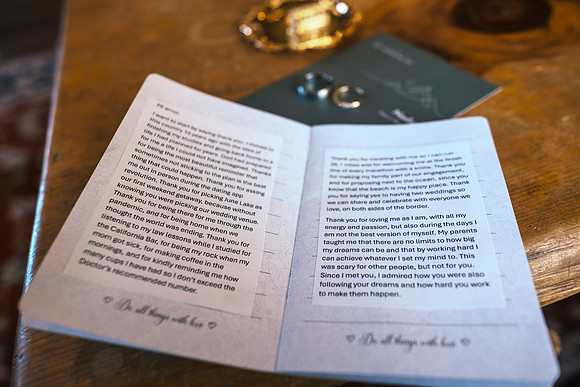 Hi amor,
I want to start by saying thank you. I moved to
this country 10 years ago with the idea of
finishing my studies and going back home to a
life I had planned for years. God had prepared
for me a life I could not have imagined. Thank you
for being the most beautiful reminder that
sometimes not sticking to the plan is the best
thing that could happen. Thank you for asking
me out in person during the dating app
revolution. Thank you for picking June Lake as
our first weekend getaway, because without
knowing you were picking our wedding venue.
Thank you for being there for me through the
pandemic, and for being home when we
thought the world was ending. Thank you for
listening to my law lessons while I studied for
the California Bar, for being my rock when my
mom got sick, for making coffee in the
mornings, and for kindly reminding me how
many cups I have had so I don't exceed the
Doctor's recommended number.
Do all things with love
Thank you for traveling with me so I can run
and for welcoming me at the finish
line of every marathon with a smile. Thank you
for making my family part of our engagement,
and for proposing next to the ocean, since you
know that the beach is my happy place. Thank
you for saying yes to having two weddings so
we can share and celebrate with everyone we
love, on both sides of the border.
Thank you for loving me as I am, with all my
energy and passion, but also during the days I
am not the best version of myself. My parents
taught me that there are no limits to how big
my dreams can be and that by working hard I
can achieve whatever I set my mind to. This
was scary for other people, but not for you.
Since I met you, I admired how you were also
following your dreams and how hard you work
to make them happen.
Do all things with love